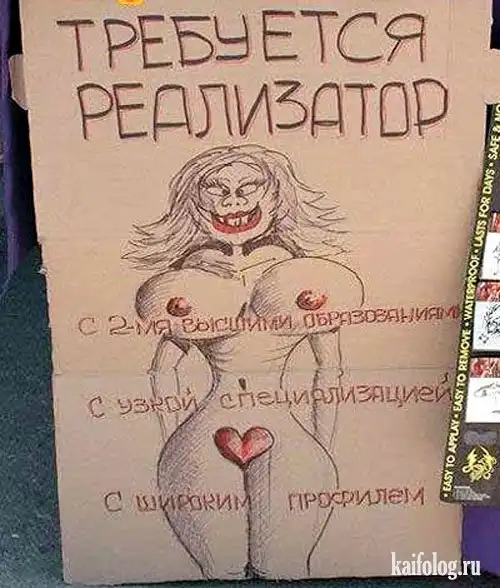 ТРЕБУЕТСЯ
РЕАЛИЗАТОР
С 2-МЯ ВЫСШИМИ ОБРАЗОВАНИЯМИ
С УЗКОЙ СПЕЦИАЛИЗАЦИЕЙ
С ШИРОКИМ ПРОФИЛЕМ
EASY TO APPLY • EASY TO REMOVE • WATERPROOF • LASTS FOR DAYS • SAFE & NO
kaifolog.ru